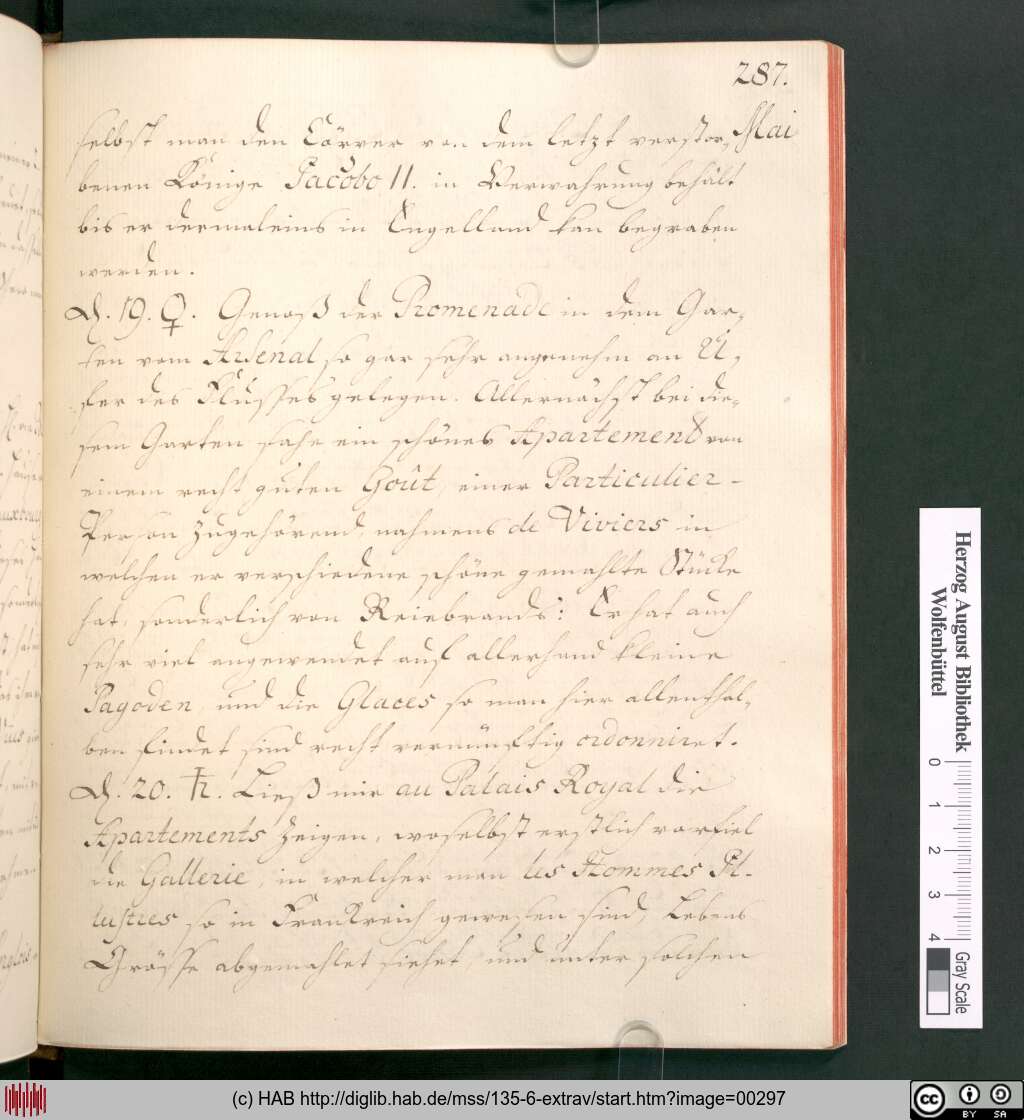 287.
Mai
selbst man den Cörper von dem letzt verstor-
benen Könige Jacobo II. in Verwahrung behält
bis er dermaleins in Engelland kan begraben
werden.
D. 19. ♀. Genoß der Promenade in dem Gar-
ten vom Arsenal so gar sehr angenehm an U-
fer des Flusses gelegen. Allernächst bei die-
sem Garten sahe ein schönes Apartement von
einem recht guten Goût, einer Particulier-
Person zugehörend, nahmens de Viviers in
welchen er verschiedene schöne gemahlte Stücke
hat, sonderlich von Reinebrands: Er hat auch
sehr viel angewendet auf allerhand kleine
Pagoden, und die Glaces so man hier allenthal-
ben findet sind recht vernünftig ordonniret.
D. 20. ♄. Ließ mir au Palais Royal die
Apartements zeigen, woselbst erstlich vorfiel
die Gallerie, in welcher man les Hommes Il-
lustres so in Frankreich gewesen sind, Lebens
Grösse abgemahlet siehet, und unter solchen
Herzog August Bibliothek
Wolfenbüttel
0 1 2 3 4
Gray Scale
(c) HAB http://diglib.hab.de/mss/135-6-extrav/start.htm?image=00297
cc BY SA